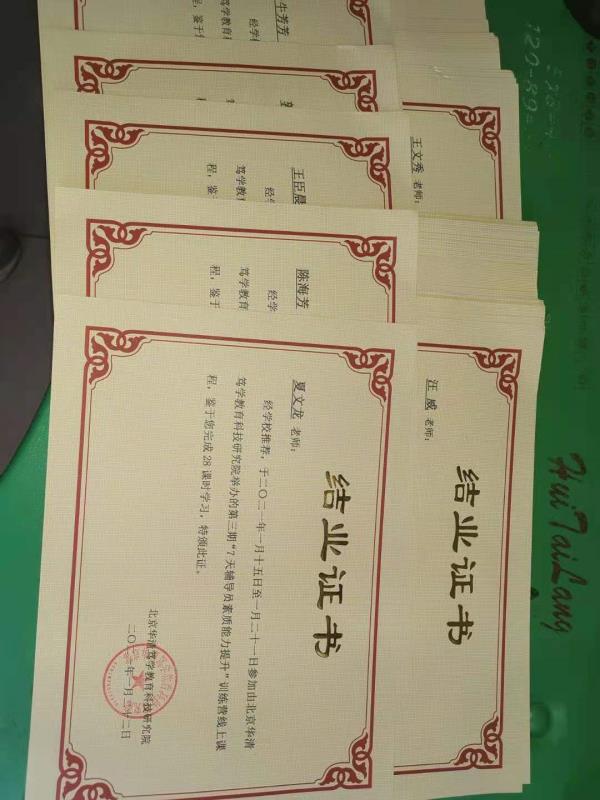 结业证书
夏文龙 老师：
经学校推荐，于二〇二一年一月十五日至一月二十一日参加由北京华清
笃学教育科技研究院举办的第三期“7天辅导员素质能力提升”训练营线上课
程，鉴于您完成28课时学习，特颁此证。
北京华清笃学教育科技研究院
二〇二一年一月二十二日
结业证书
汪威 老师：
陈海芳
经学
笃学教育
程，鉴于
王臣晨
经学
笃学教育
程，鉴
王文秀 老师：
牛芳芳
经学
笃学教育科
程，鉴于
Hui Tai Lang
120-89=